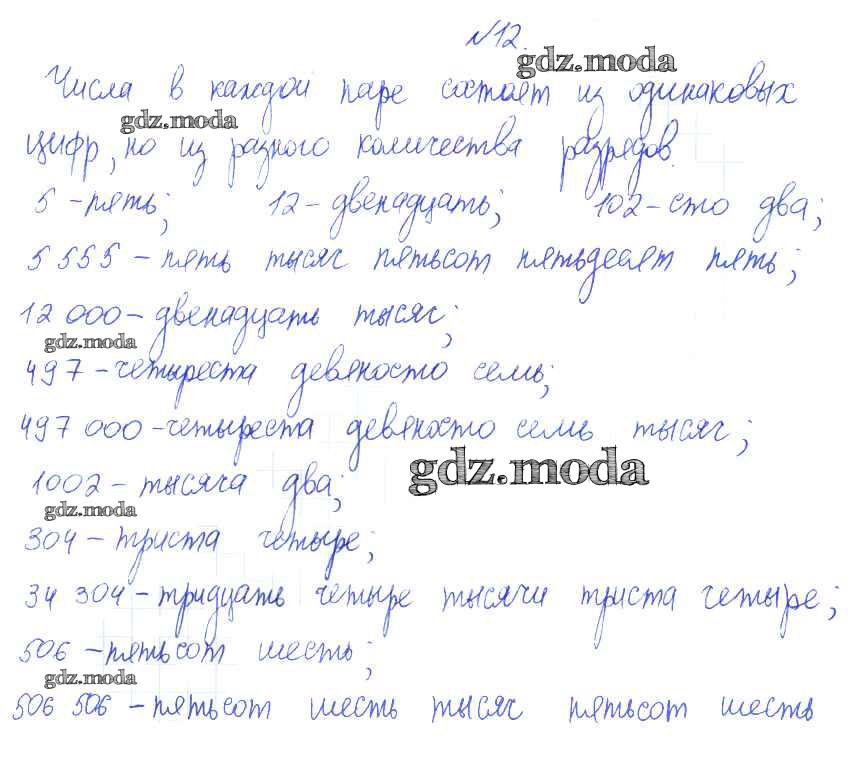 №12.
gdz.moda
Числа в каждой паре состоят из одинаковых
gdz.moda
цифр, но из разного количества разрядов.
5 - пять; 12 - двенадцать; 102 - сто два;
5 555 - пять тысяч пятьсот пятьдесят пять;
12 000 - двенадцать тысяч;
gdz.moda
497 - четыреста девяносто семь;
497 000 - четыреста девяносто семь тысяч;
gdz.moda
1002 - тысяча два;
gdz.moda
304 - триста четыре;
34 304 - тридцать четыре тысячи триста четыре;
506 - пятьсот шесть;
gdz.moda
506 506 - пятьсот шесть тысяч пятьсот шесть